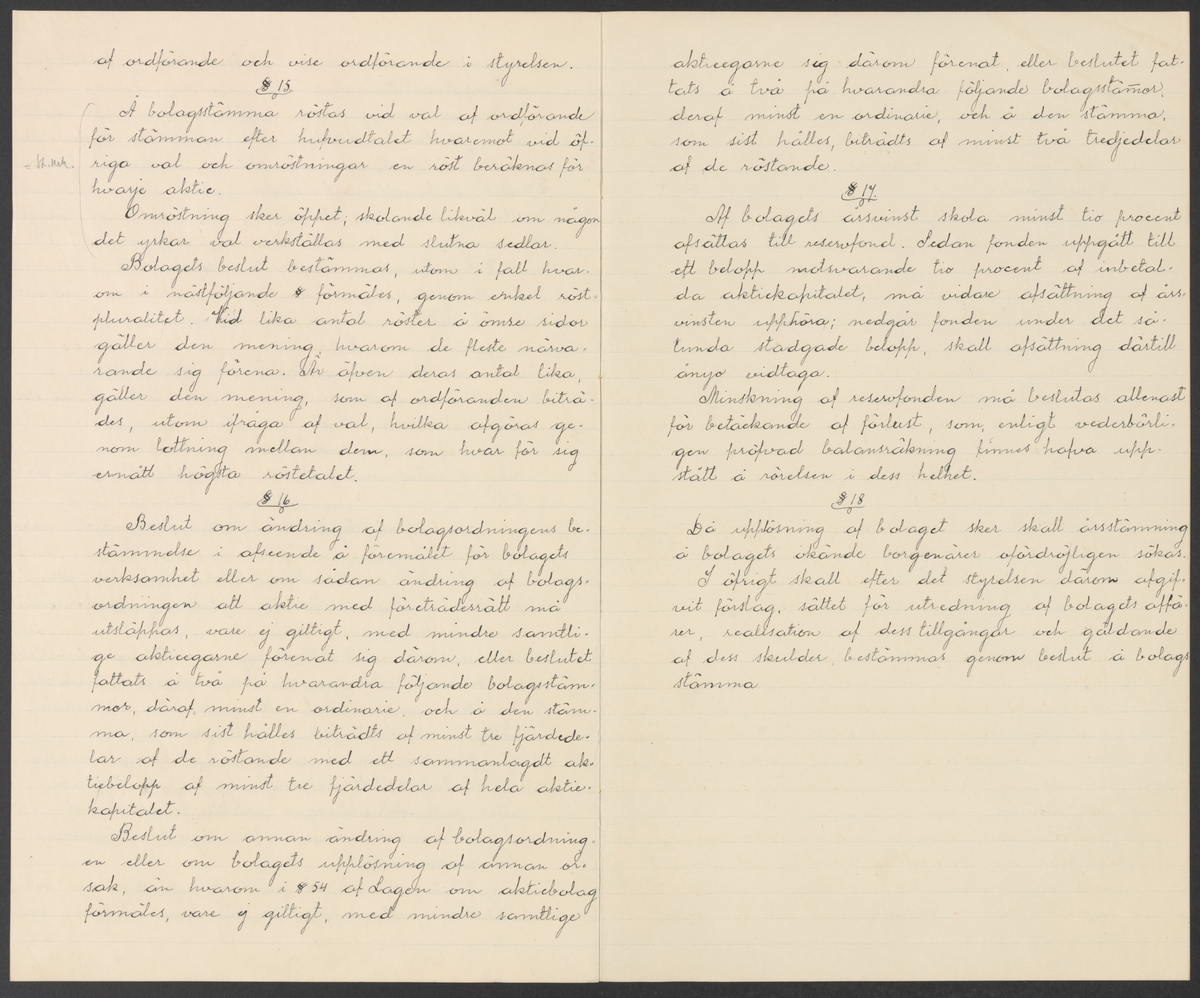 af ordförande och vise ordförande i styrelsen.
§ 15
Å bolagsstämma röstas vid val af ordförande
för stämman efter hufvudtalet hvaremot vid öf-
riga val och omröstningar en röst beräknas för
hvarje aktie.
Omröstning sker öppet; skolande likväl om någon
det yrkar val verkställas med slutna sedlar.
Bolagets beslut bestämmas, utom i fall hvar-
om i nästföljande § förmäles, genom enkel röst-
pluralitet. Vid lika antal röster å ömse sidor
gäller den mening, hvarom de fleste närva-
rande sig förena. Är äfven deras antal lika,
gäller den mening, som af ordföranden biträ-
des, utom ifråga af val, hvilka afgöras ge-
nom lottning mellan dem, som hvar för sig
ernått högsta röstetalet.
§ 16
Beslut om ändring af bolagsordningens be-
stämmelse i afseende å föremålet för bolagets
verksamhet eller om sådan ändring af bolags-
ordningen att aktie med företrädesrätt må
utsläppas, vare ej giltigt, med mindre samtli-
ge aktieegarne förenat sig därom, eller beslutet
fattats å två på hvarandra följande bolagsstäm-
mor, däraf minst en ordinarie, och å den stäm-
ma, som sist hålles biträdts af minst tre fjärdede-
lar af de röstande med ett sammanlagdt ak-
tiebelopp af minst tre fjärdedelar af hela aktie-
kapitalet.
Beslut om annan ändring af bolagsordning-
en eller om bolagets upplösning af annan or-
sak, än hvarom i § 54 af Lagen om aktiebolag
förmäles, vare ej giltigt, med mindre samtlige
aktieegarne sig därom förenat, eller beslutet fat-
tats å två på hvarandra följande bolagsstämor,
deraf minst en ordinarie, och å den stämma,
som sist hålles, biträdts af minst två tredjedelar
af de röstande.
§ 17
Af bolagets årsvinst skola minst tio procent
afsättas till reservfond. Sedan fonden uppgått till
ett belopp motsvarande tio procent af inbetal-
da aktiekapitalet, må vidare afsättning af års-
vinsten upphöra; nedgår fonden under det så-
lunda stadgade belopp, skall afsättning därtill
ånyo vidtaga.
Minskning af reservfonden må beslutas allenast
för betäckande af förlust, som, enligt vederbörli-
gen pröfvad balansräkning finnes hafva upp-
stått å rörelsen i dess helhet.
§ 18
Då upplösning af bolaget sker skall årsstämning
å bolagets okände borgenärer ofördröjligen sökas.
I öfrigt skall efter det styrelsen därom afgif-
vit förslag, sättet för utredning af bolagets affä-
rer, realisation af dess tillgångar och gäldande
af dess skulder, bestämmas genom beslut å bolags
stämma